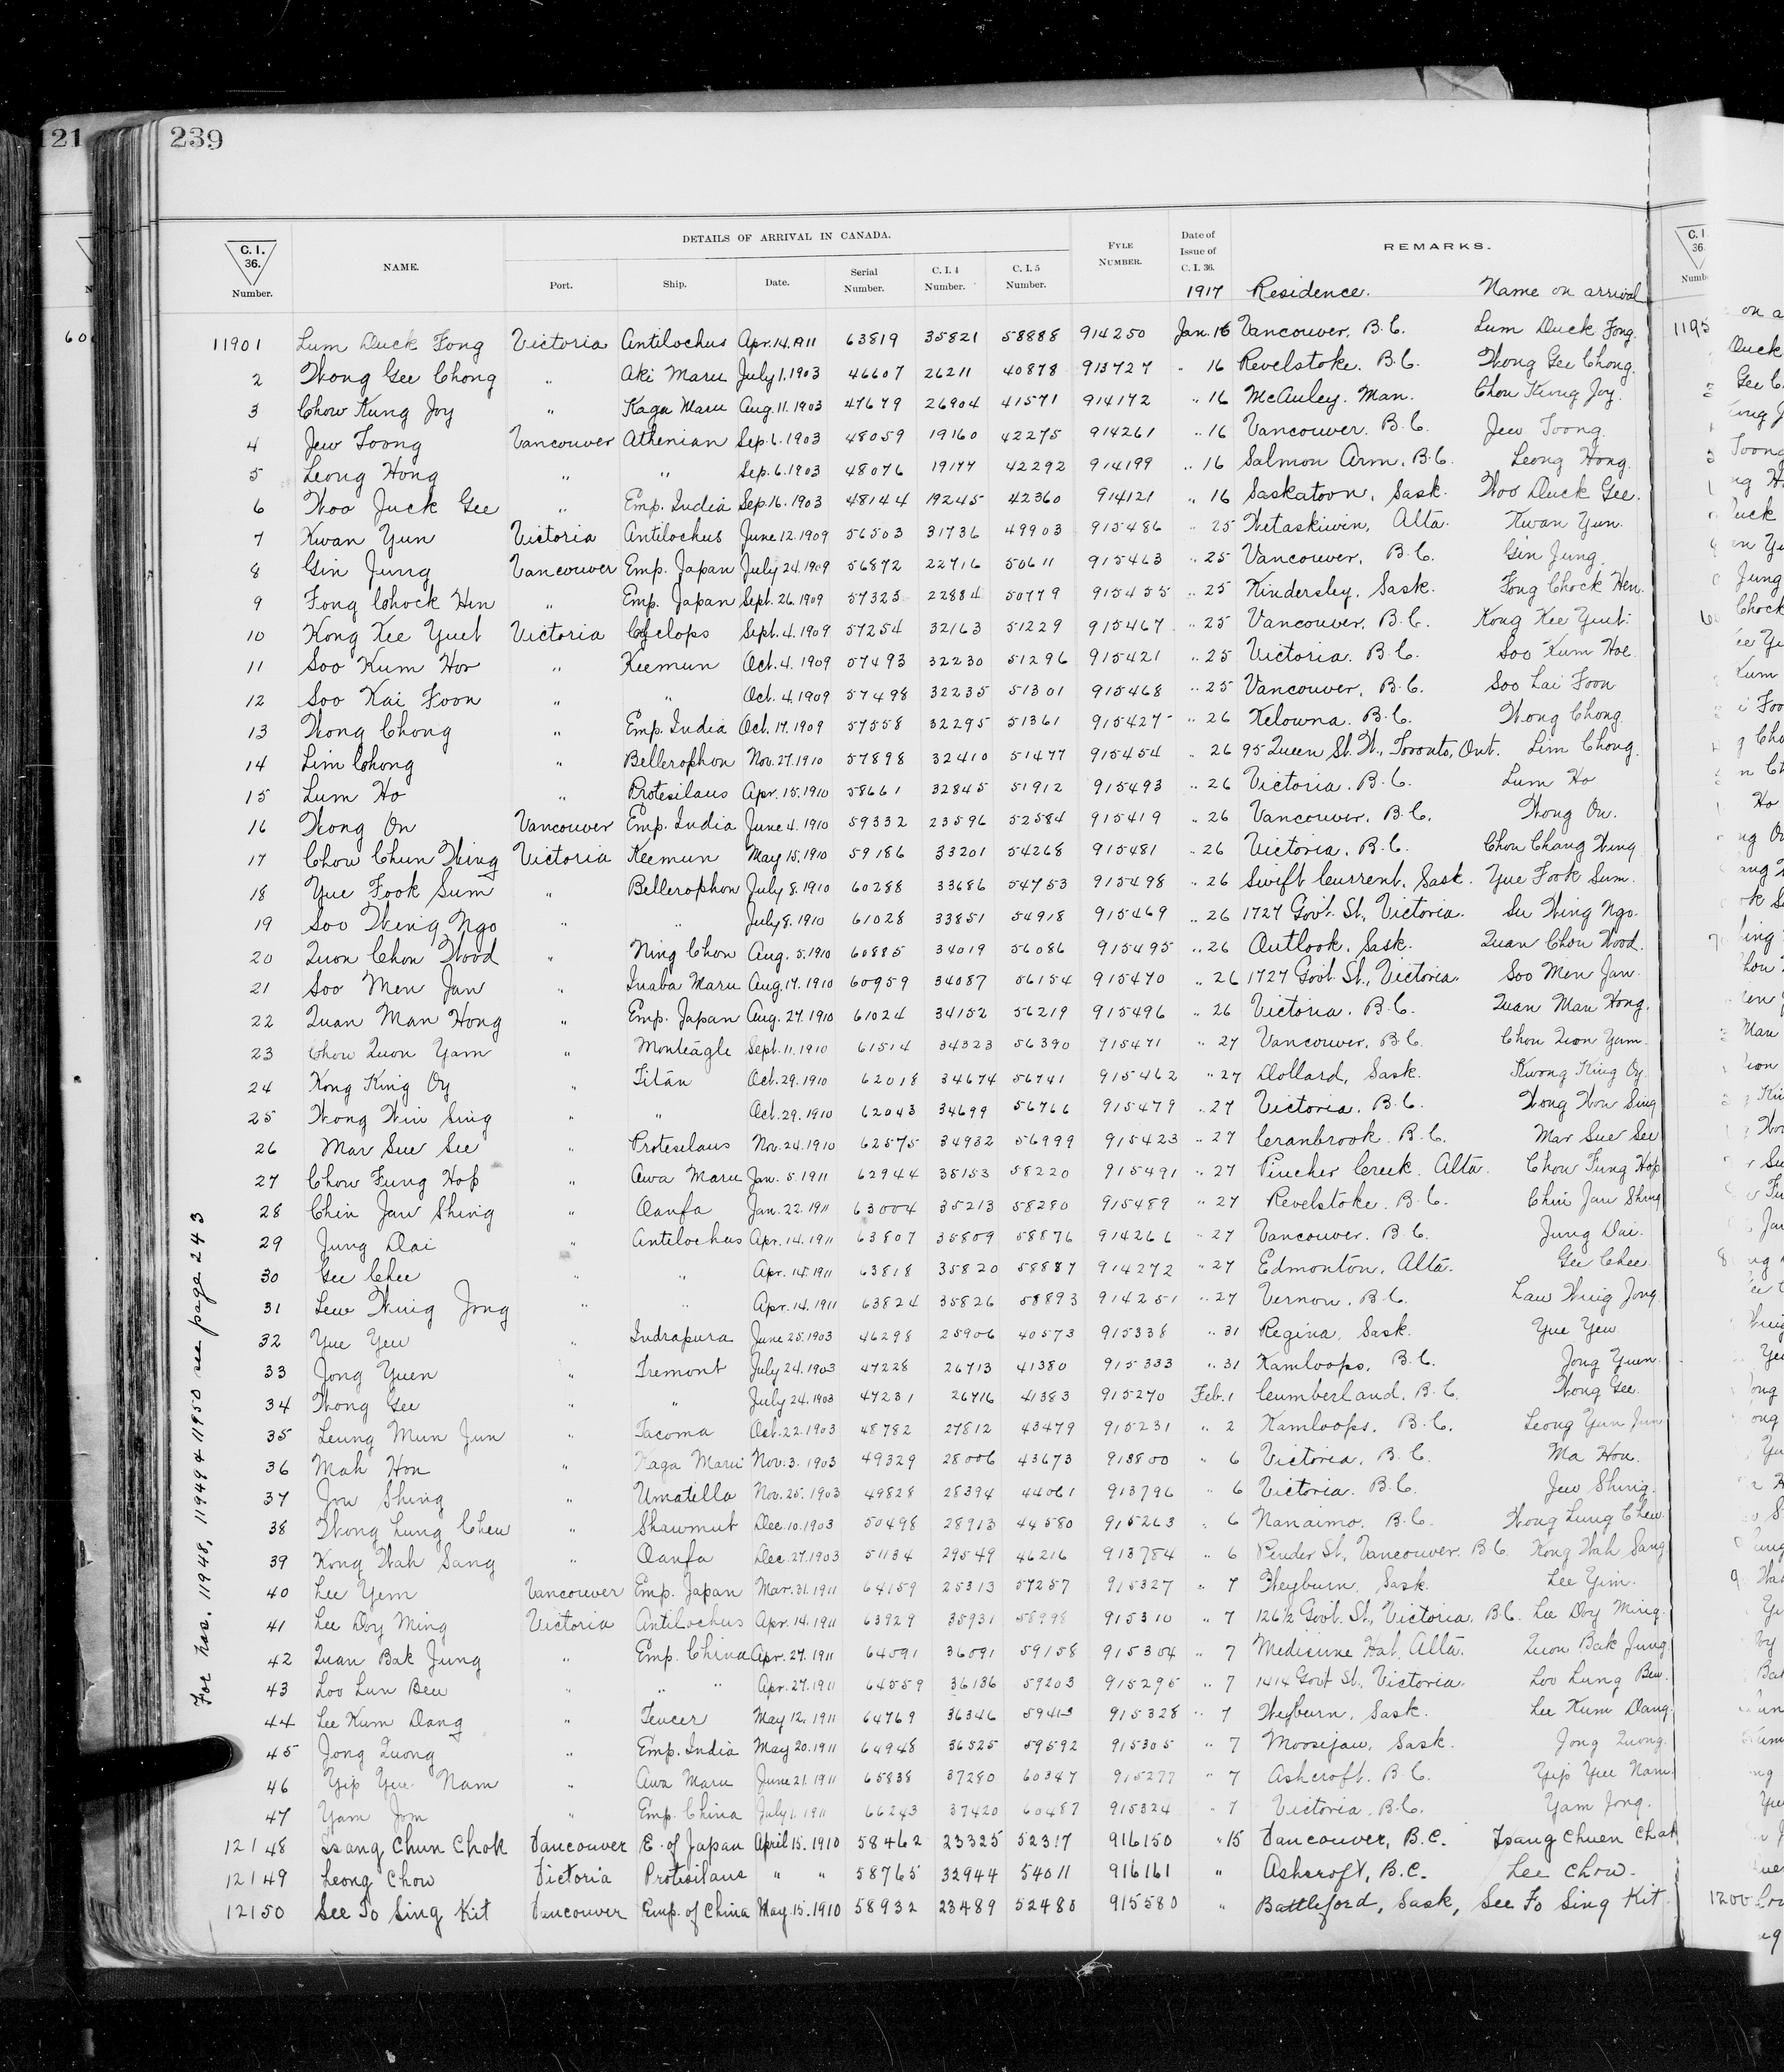 239
DETAILS OF ARRIVAL IN CANADA.
C. I. 36. Number. NAME. Port. Ship. Date. Serial Number. C. I. 4 Number. C. I. 5 Number. FYLE NUMBER. Date of Issue of C. I. 36. REMARKS.
1917 Residence. Name on arrival
11901 Lum Duck Fong Victoria Antilochus Apr. 14. 1911 63819 35821 58888 914250 Jan. 16 Vancouver. B.C. Lum Duck Fong.
2 Wong Gee Chong " Aki Maru July 1. 1903 46607 26211 40878 913727 " 16 Revelstoke. B.C. Wong Gee Chong.
3 Chow Kung Joy " Kaga Maru Aug. 11. 1903 47679 26904 41571 914172 " 16 McAuley. Man. Chow Kung Joy.
4 Jew Toong Vancouver Athenian Sep. 6. 1903 48059 19160 42275 914261 " 16 Vancouver. B.C. Jew Toong.
5 Leong Hong " " Sep. 6. 1903 48076 19177 42292 914199 " 16 Salmon Arm. B.C. Leong Hong.
6 Woo Juck Gee " Emp. India Sep. 16. 1903 48144 19245 42360 914121 " 16 Saskatoon, Sask. Woo Duck Gee.
7 Kwan Yun Victoria Antilochus June 12. 1909 56503 31736 49903 915486 " 25 Wetaskiwin, Alta. Kwan Yun.
8 Gin Jung Vancouver Emp. Japan July 24. 1909 56872 22716 50611 915463 " 25 Vancouver, B.C. Gin Jung.
9 Fong Chock Hen " Emp. Japan Sept. 26. 1909 57325 22884 50779 915455 " 25 Kindersley, Sask. Fong Chock Hen.
10 Kong Kee Yuet Victoria Cyclops Sept. 4. 1909 57254 32163 51229 915467 " 25 Vancouver. B.C. Kong Kee Yuet.
11 Soo Kum Hor " Keemun Oct. 4. 1909 57493 32230 51296 915421 " 25 Victoria. B.C. Soo Kum Hoe.
12 Soo Kai Foon " " Oct. 4. 1909 57498 32235 51301 915468 " 25 Vancouver, B.C. Soo Lai Foon
13 Wong Chong " Emp. India Oct. 17. 1909 57558 32295 51361 915427 " 26 Kelowna. B.C. Wong Chong.
14 Lim Chong " Bellerophon Nov. 27. 1910 57898 32410 51477 915454 " 26 95 Queen St. W., Toronto, Ont. Lim Chong.
15 Lum Ho " Protesilaus Apr. 15. 1910 58661 32845 51912 915493 " 26 Victoria. B.C. Lum Ho
16 Wong On Vancouver Emp. India June 4. 1910 59332 23596 52584 915419 " 26 Vancouver. B.C. Wong On.
17 Chow Chun Wing Victoria Keemun May 15. 1910 59186 33201 54268 915481 " 26 Victoria. B.C. Chow Chang Wing
18 Yue Fook Sum " Bellerophon July 8. 1910 60288 33686 54753 915498 " 26 Swift Current. Sask. Yue Fook Sum.
19 Soo Wing Ngo " " July 8. 1910 61028 33851 54918 915469 " 26 1727 Gov't. St., Victoria. Su Wing Ngo.
20 Quon Chow Wood " Ning Chow Aug. 5. 1910 60885 34019 56086 915495 " 26 Outlook. Sask. Quan Chow Wood.
21 Soo Men Jan " Inaba Maru Aug. 17. 1910 60959 34087 56154 915470 " 26 1727 Govt St., Victoria. Soo Men Jan.
22 Quan Man Hong " Emp. Japan Aug. 27. 1910 61024 34152 56219 915496 " 26 Victoria. B.C. Quan Man Hong.
23 Chow Quon Yam " Monteagle Sept. 11. 1910 61514 34323 56390 915471 " 27 Vancouver. B.C. Chow Qion Yam.
24 Kong King Oy " Titan Oct. 29. 1910 62018 34674 56741 915462 " 27 Dollard, Sask. Kwong King Oy.
25 Wong Win Sing " " Oct. 29. 1910 62043 34699 56766 915479 " 27 Victoria. B.C. Wong Wow Sing
26 Mar Sue See " Protesilaus Nov. 24. 1910 62575 34932 56999 915423 " 27 Cranbrook. B.C. Mar Sue See
27 Chow Fung Hop " Awa Maru Jan. 5. 1911 62944 35153 58220 915491 " 27 Pincher Creek. Alta. Chow Fung Hop
28 Chin Jaw Shing " Oanfa Jan. 22. 1911 63004 35213 58280 915489 " 27 Revelstoke. B.C. Chin Jan Shing
29 Jung Dai " Antilochus Apr. 14. 1911 63807 35809 58876 914266 " 27 Vancouver. B.C. Jung Dai.
30 Gee Chee " " Apr. 14. 1911 63818 35820 58887 914272 " 27 Edmonton, Alta. Gee Chee
31 Lew Wing Jong " " Apr. 14. 1911 63824 35826 58893 914251 " 27 Vernon. B.C. Law Wing Jong.
32 Yue Yew " Indrapura June 25. 1903 46298 25906 40573 915338 " 31 Regina, Sask. Yue Yew
33 Jong Yuen " Tremont July 24. 1903 47228 26713 41380 915333 " 31 Kamloops, B.C. Jong Yuen.
34 Wong Gee " " July 24. 1903 47231 26716 41383 915270 Feb. 1 Cumberland. B.C. Wong Gee.
35 Leung Mun Jun " Tacoma Oct. 22. 1903 48782 27812 43479 915231 " 2 Kamloops. B.C. Leong Yun Jun
36 Mah Hon " Kaga Maru Nov. 3. 1903 49329 28006 43673 913800 " 6 Victoria. B.C. Ma Hon.
37 Jow Shing " Umatella Nov. 25. 1903 49828 28394 44061 913796 " 6 Victoria. B.C. Jew Shing.
38 Wong Lung Chew " Shawmut Dec. 10. 1903 50498 28913 44580 915263 " 6 Nanaimo, B.C. Wong Lung Chew.
39 Kong Wah Sang " Oanfa Dec. 27. 1903 51134 29549 46216 913784 " 6 Pender St., Vancouver. B.C. Kong Wah Sang
40 Lee Yem Vancouver Emp. Japan Mar. 31. 1911 64159 25313 57257 915327 " 7 Weyburn, Sask. Lee Yim.
41 Lee Doy Ming Victoria Antilochus Apr. 14. 1911 63929 35931 58998 915310 " 7 126½ Govt. St., Victoria, B.C. Lee Doy Ming.
42 Quan Bak Jung " Emp. China Apr. 27. 1911 64091 36091 59158 915304 " 7 Medicine Hat, Alta. Quon Bak Jung.
43 Loo Lun Bew " " " Apr. 27. 1911 64559 36136 59203 915295 " 7 1414 Govt St., Victoria. Loo Lung Bew.
44 Lee Kum Dang " Teucer May 12. 1911 64769 36346 59413 915328 " 7 Weyburn, Sask. Lee Kum Dang.
45 Jong Quong " Emp. India May 20. 1911 64948 36525 59592 915305 " 7 Moosejaw, Sask. Jong Quong.
46 Yip Yue Nam " Awa Maru June 21. 1911 65838 37280 60347 915277 " 7 Ashcroft. B.C. Yip Yue Nam.
47 Yam Jom " Emp. China July 1. 1911 66243 37420 60487 915324 " 7 Victoria. B.C. Yam Jong.
12148 Tsang Chun Chok Vancouver E. of Japan April 15. 1910 58462 23325 52317 916150 " 15 Vancouver, B.C. Tsang Chuen Chak
12149 Leong Chow Victoria Protesilaus " " 58765 32944 54011 916161 " Ashcroft, B.C. Lee Chow.
12150 See To Sing Kit Vancouver Emp. of China May. 15. 1910 58932 23489 52480 915580 " Battleford, Sask, See To Sing Kit
For Nos. 11948, 11949 & 11950 see page 243